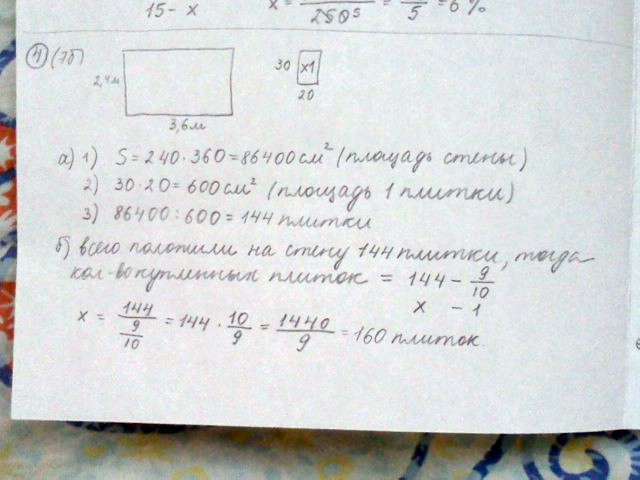 15 - x x = /2505 = /5 = 6%
4 (7б)
2,4м 30 x1
20
3,6м
а) 1) S = 240 · 360 = 86400 см² (площадь стены)
2) 30 · 20 = 600 см² (площадь 1 плитки)
3) 86400 : 600 = 144 плитки
б) всего положили на стену 144 плитки, тогда
кол-во купленных плиток = 144 - 9/10
x - 1
x = 144/(9/10) = 144 · 10/9 = 1440/9 = 160 плиток